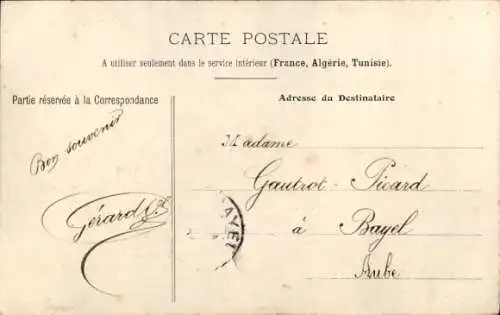 CARTE POSTALE
A utiliser seulement dans le service intérieur (France, Algérie, Tunisie).
Partie réservée à la Correspondance
Adresse du Destinataire
Bon souvenir
Gérard
Madame
Gautrot-Picard
à Bayel
Aube
BAYEL